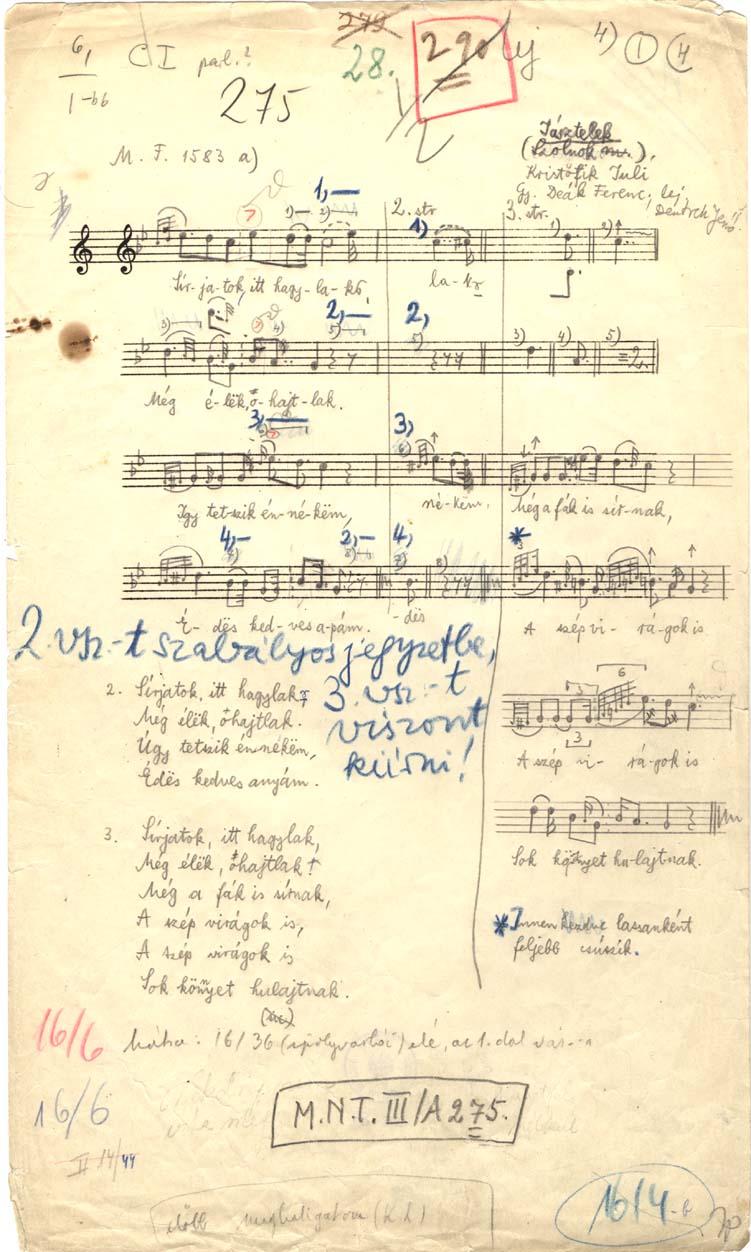 279
6/1
1-bb
C I parl.?
275
28.
29
4) 1 4
M. F. 1583 a)
Jásztelek
(Szolnok m.),
Kristófik Juli
Gy. Deák Ferenc, lej.
7
1,-
2. str
3. str.
1)
1)
2)
Sír-ja-tok, itt hagy-la-kő
la-kő
3)
2,-
2,
5)
3)
4)
5)
=2.
Még é-lëk, ő-hajt-lak.
3,
3,
Így tet-szik én-né-këm,
né-këm,
Még a fák is sír-nak,
4,-
2,-
4,
*
É-dës ked-ves a-pám.
-dës
A szép vi-rá-gok is
2. vsz.-t szabályos jegyzetbe,
3. vsz.-t
viszont
kiírni!
2. Sírjatok, itt hagylak
Még élëk, őhajtlak.
Úgy tetszik énnékëm,
Édës kedves anyám.
3
6
3
A szép vi-rá-gok is
3. Sírjatok, itt hagylak,
Még élëk, őhajtlak!
Még a fák is sírnak,
A szép virágok is,
A szép virágok is
Sok könnyet hulajtnak.
Sok könnyet hu-lajtnak.
*Innen kezdve lassanként
feljebb csúszik.
16/6
16/36 (ipolyvarbói) elé, az 1. dal
16/6
M.N.T. III/A 275.
II 14/44
16/4-b
előbb meghallgatom (K. L.)